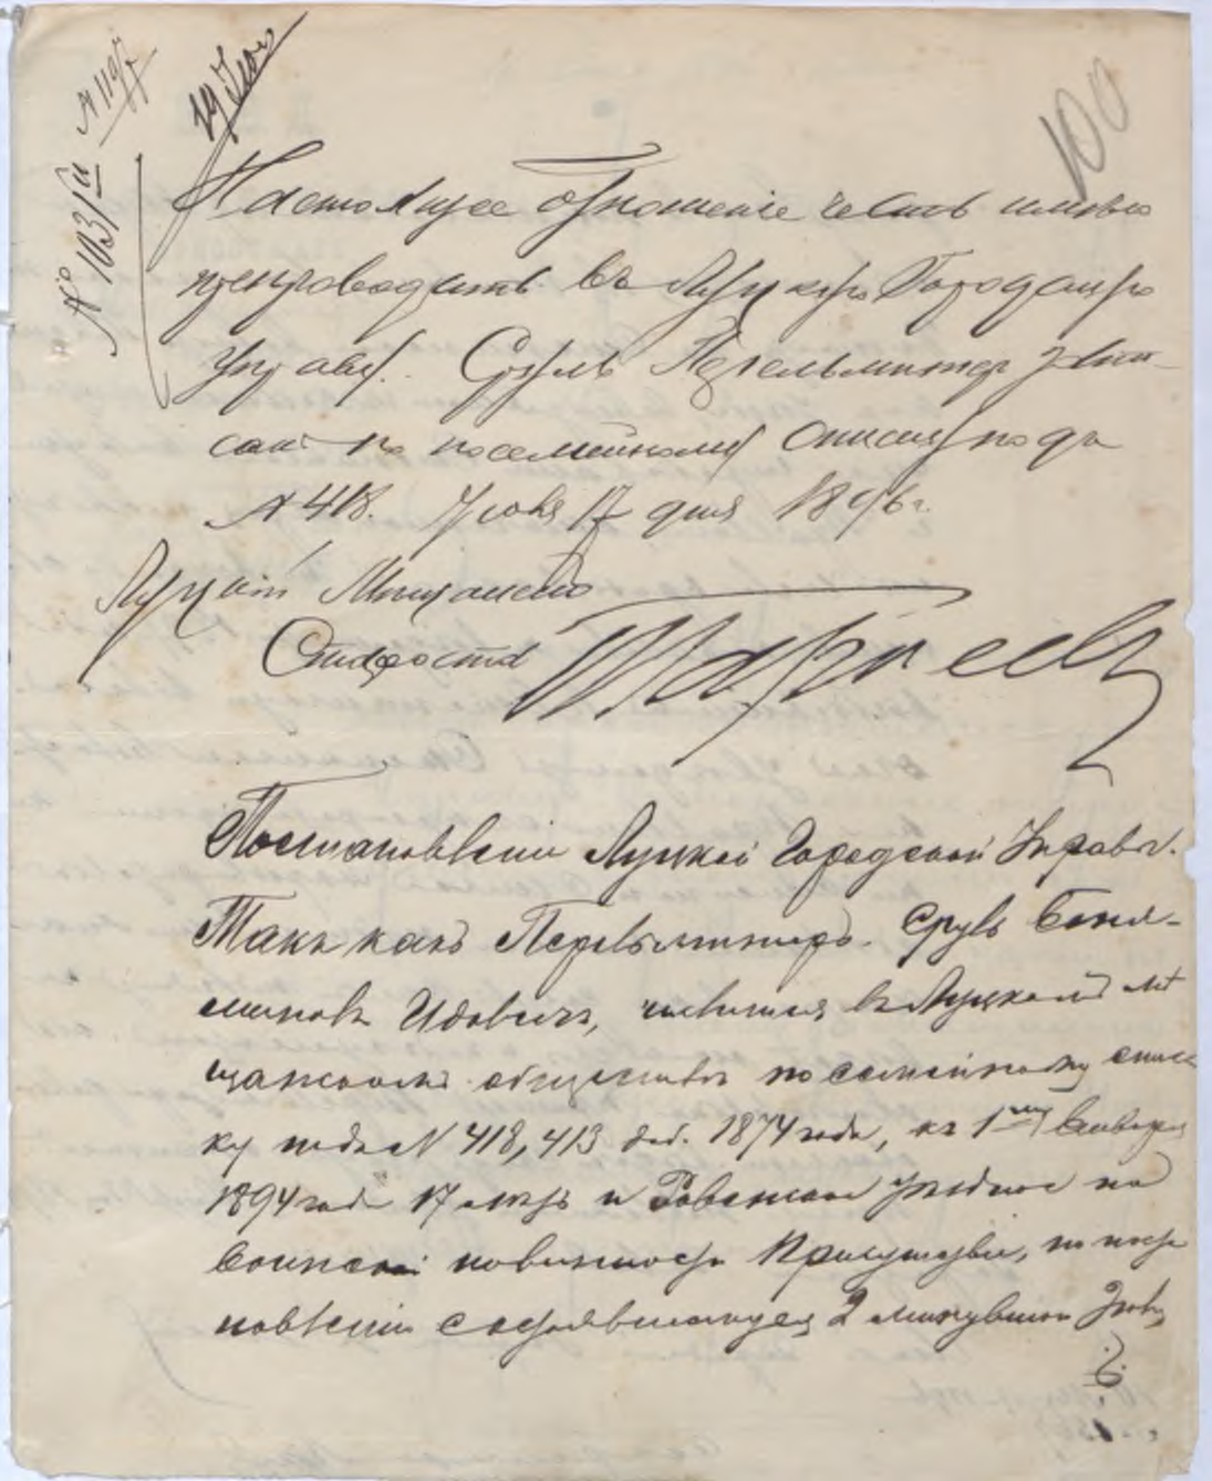 № 1197
19 Іюн
100
№ 103/II
Настоящее отношеніе честь имѣю
препроводить въ Луцкую Городскую
Управу. Сруль Перельмитер запи-
сан по посемейному списку подъ
№ 418. Іюня 17 дня 1896 г.
Луцкій Мѣщанскій
Староста
Постановленіе Луцкой Городской Управы.
Такъ какъ Перельмитеръ Сруль Беня-
миновъ Идовичъ, числится въ Луцкомъ мѣ
щанскомъ обществѣ по семейному спис
ку подъ № 418, 413 1874 года, къ 1му Января
1894 года 17 лѣтъ и Ровенское уѣздное по
воинской повинности Присутствіе, по поста
новленію состоявшемуся 2 минувшаго Іюня,